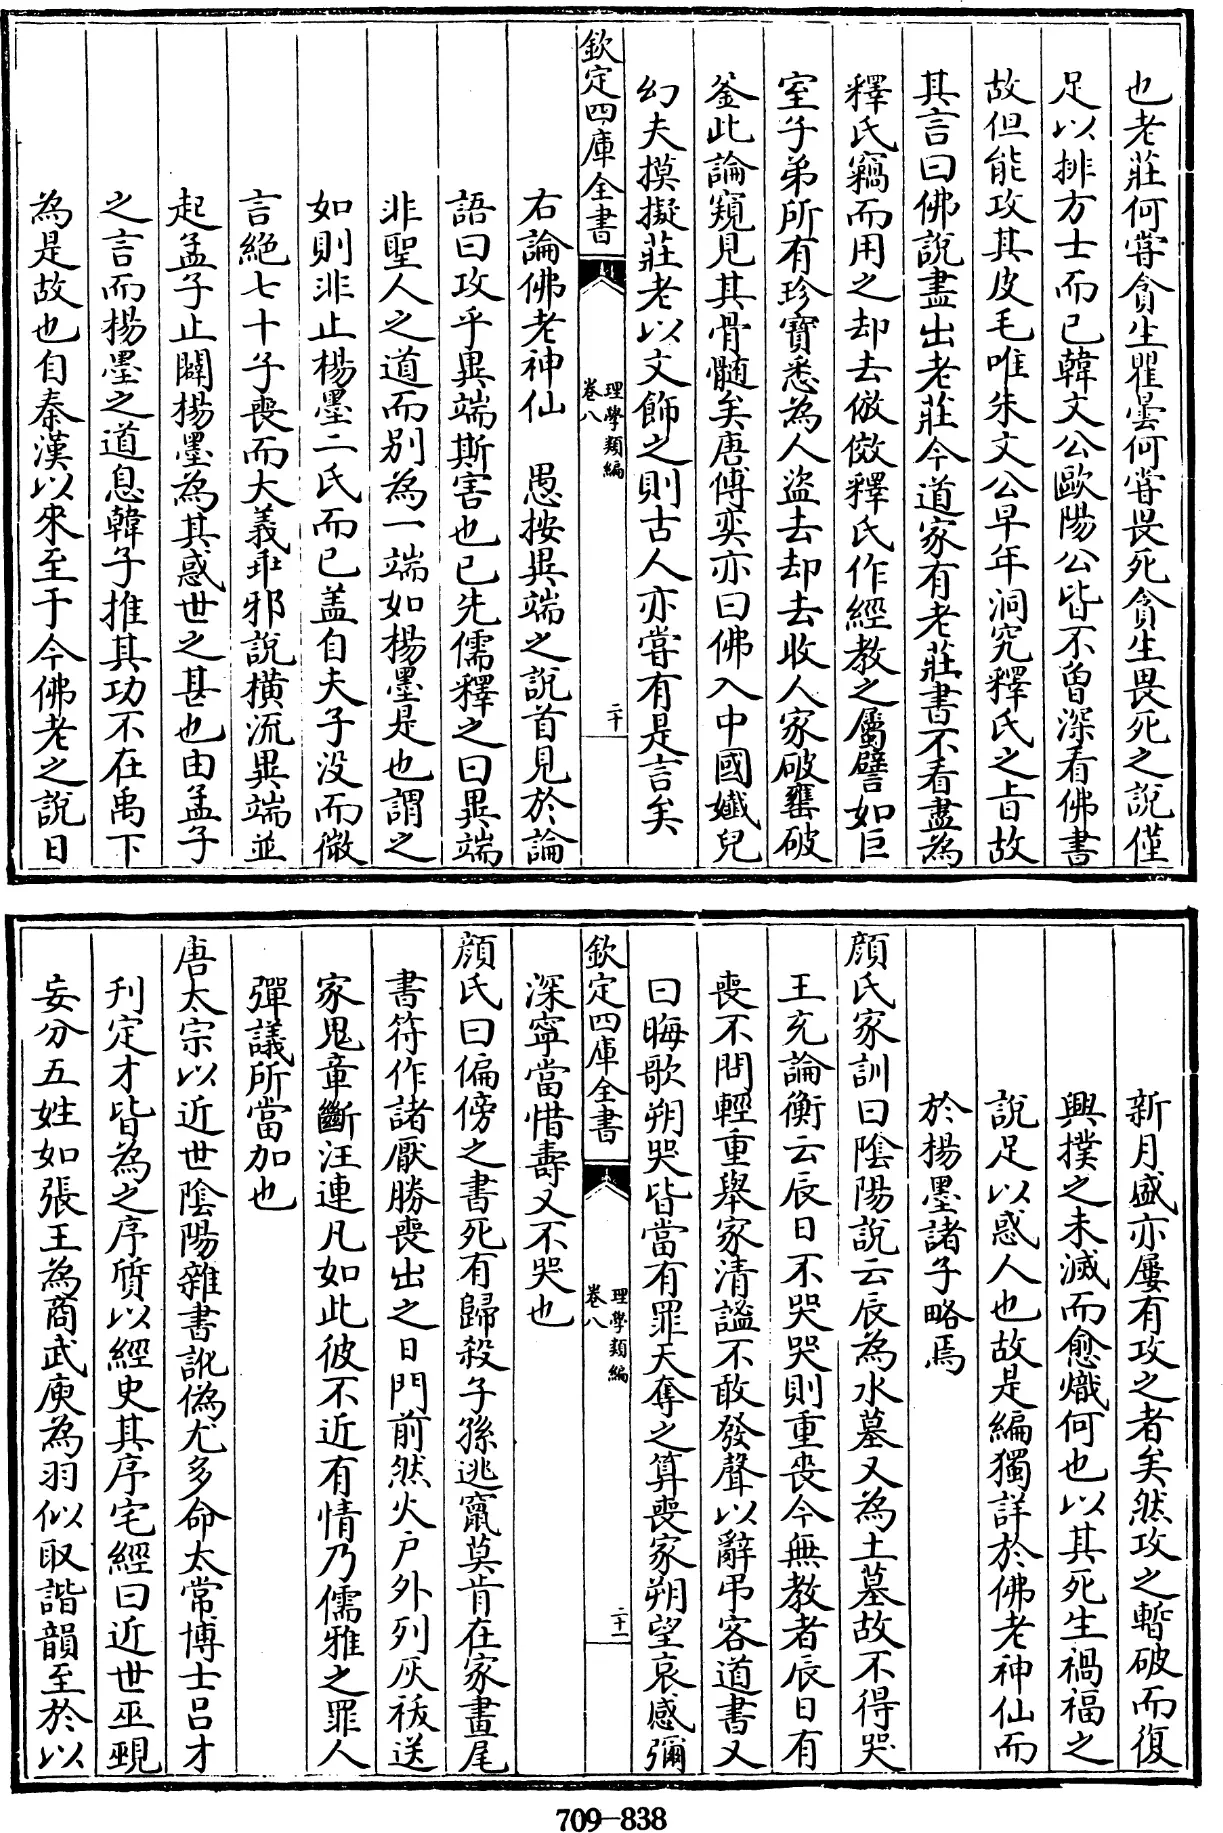 也老莊何嘗貪生瞿曇何嘗畏死貪生畏死之說僅
足以排方士而已韓文公歐陽公皆不曽深看佛書
故但能攻其皮毛唯朱文公早年洞究釋氏之㫖故
其言曰佛說盡出老莊今道家有老莊書不看盡為
釋氏竊而用之却去倣傚釋氏作經教之屬譬如巨
室子弟所有珍寶悉為人盜去却去收人家破甕破
釜此論窺見其骨髄矣唐傅奕亦曰佛入中國孅兒
幻夫摸擬莊老以文飾之則古人亦嘗有是言矣
欽定四庫全書
理學類編
卷八
二十
右論佛老神仙　愚按異端之說首見於論
語曰攻乎異端斯害也已先儒釋之曰異端
非聖人之道而别為一端如楊墨是也謂之
如則非止楊墨二氏而已盖自夫子没而微
言絶七十子喪而大義乖邪說横流異端並
起孟子止闢楊墨為其惑世之甚也由孟子
之言而楊墨之道息韓子推其功不在禹下
為是故也自秦漢以來至于今佛老之說日
新月盛亦屢有攻之者矣然攻之暫破而復
興撲之未滅而愈熾何也以其死生禍福之
說足以惑人也故是編獨詳於佛老神仙而
於楊墨諸子略焉
顔氏家訓曰陰陽說云辰為水墓又為土墓故不得哭
王充論衡云辰日不哭哭則重喪今無教者辰日有
喪不問輕重舉家清謐不敢發聲以辭弔客道書又
曰晦歌朔哭皆當有罪天奪之算喪家朔望哀感彌
欽定四庫全書
理學類編
卷八
二十一
深寧當惜壽又不哭也
顔氏曰偏傍之書死有歸殺子孫逃竄莫肯在家畫尾
書符作諸厭勝喪出之日門前然火户外列灰祓送
家鬼章斷汪連凡如此彼不近有情乃儒雅之罪人
彈議所當加也
唐太宗以近世陰陽雜書訛偽尤多命太常博士吕才
刋定才皆為之序質以經史其序宅經曰近世巫覡
妄分五姓如張王為商武庾為羽似取諧韻至於以
709-838